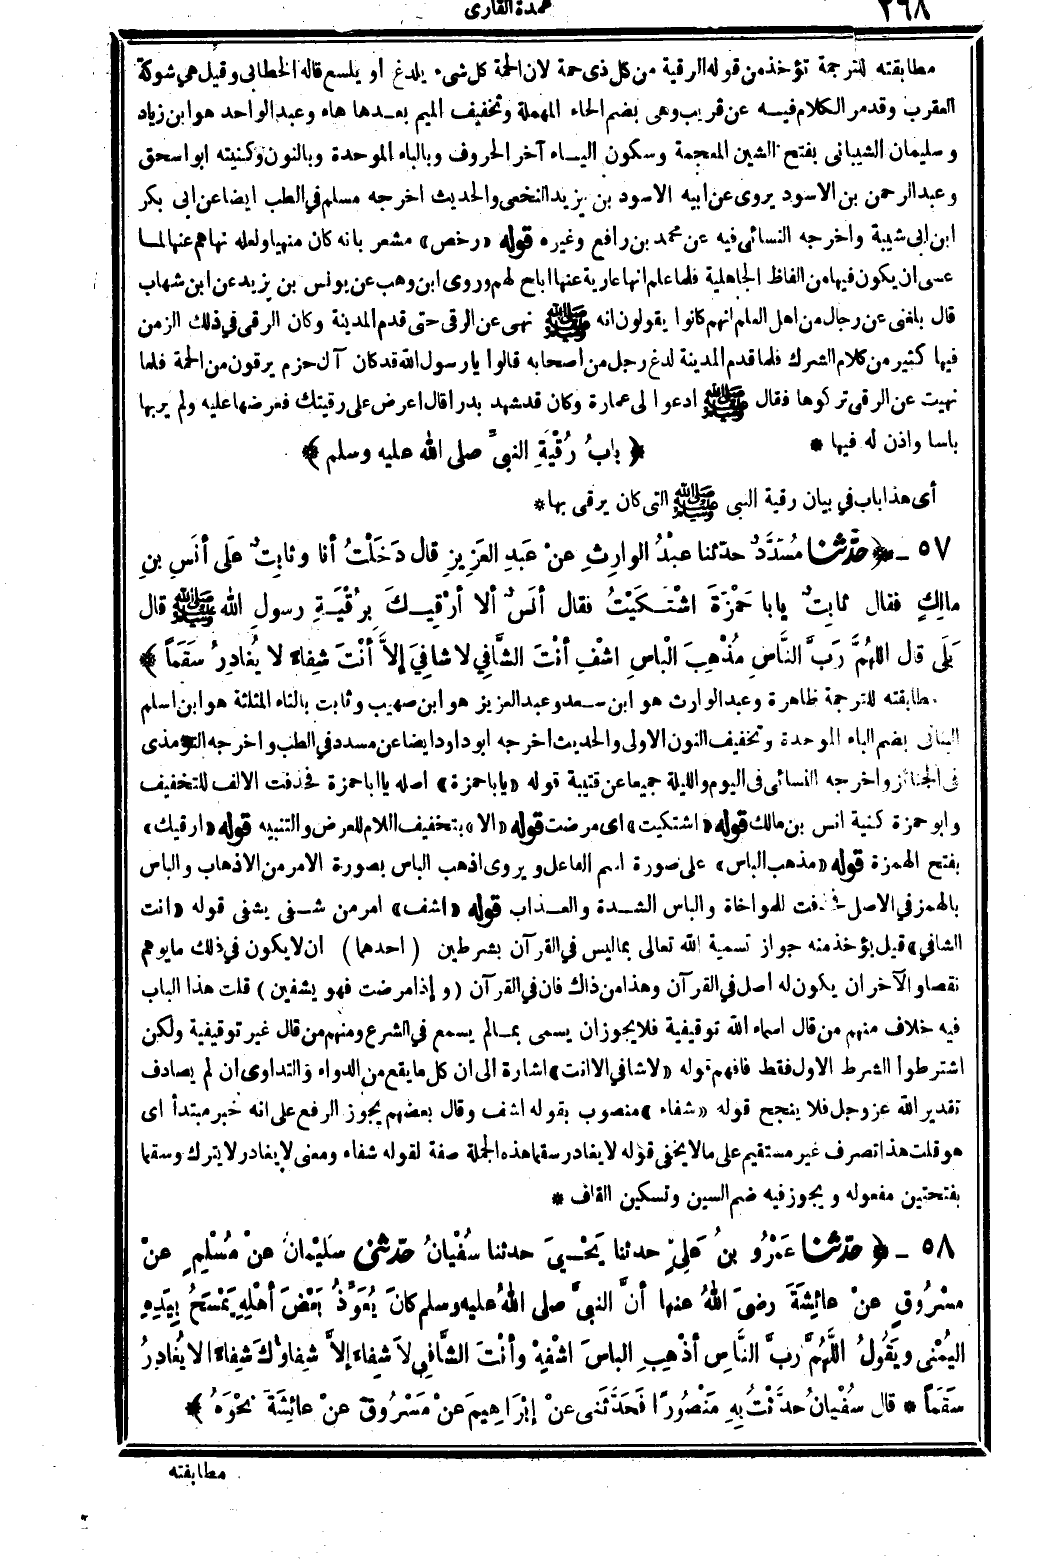 ٢٦٨
عمدة القارى
مطابقته للترجمة تؤخذ من قوله الرقية من كل ذى حمة لان الحمة كل شىء يلدغ أو يلسع قاله الخطابى وقيل هى شوكة
العقرب وقد مر الكلام فيه عن قريب وهى بضم الحاء المهملة وتخفيف الميم بعدها هاء وعبد الواحد هو ابن زياد
وسليمان الشيبانى بفتح الشين المعجمة وسكون الياء آخر الحروف وبالباء الموحدة وبالنون وكنيته ابو اسحق
وعبد الرحمن بن الاسود يروى عن ابيه الاسود بن يزيد النخعى والحديث اخرجه مسلم فى الطب ايضا عن ابى بكر
ابن ابى شيبة واخرجه النسائى فيه عن محمد بن رافع وغيره قوله «رخص» مشعر بانه كان منهيا ولعله نهاهم عنها لما
عسى ان يكون فيها من الفاظ الجاهلية فلما علم انها عارية عنها اباح لهم وروى ابن وهب عن يونس بن يزيد عن ابن شهاب
قال بلغنى عن رجال من اهل العلم انهم كانوا يقولون انه ﷺ نهى عن الرقى حتى قدم المدينة وكان الرقى فى ذلك الزمن
فيها كثير من كلام الشرك فلما قدم المدينة لدغ رجل من أصحابه قالوا يا رسول الله قد كان آل حزم يرقون من الحمة فلما
نهيت عن الرقى تركوها فقال ﷺ ادعوا لى عمارة وكان قد شهد بدرا قال اعرض على رقيتك فعرضها عليه ولم ير بها
باسا واذن له فيها *
﴿ بابُ رُقْيَةِ النبىِّ صلى الله عليه وسلم ﴾
أى هذا باب فى بيان رقية النبى ﷺ التى كان يرقى بها *
٥٧ ـ ﴿ حدّثنا مُسَدَّدٌ حدّثنا عبْدُ الوارِثِ عنْ عَبدِ العَزِيزِ قال دَخَلْتُ أنا وثابِتٌ عَلَى أنَسِ بنِ
مالِكٍ فقال ثابِتٌ يا با حَمْزَةَ اشْتَكَيْتُ فقال أنَسٌ ألا أرْقِيكَ بِرُقْيَةِ رسولِ اللهِ ﷺ قال
بَلَى قال اللهُمَّ رَبَّ النَّاسِ مُذْهِبَ الباسِ اشْفِ أنْتَ الشَّافِي لا شافِيَ إلاَّ أنْتَ شِفاءً لا يُغادِرُ سَقَماً ﴾
مطابقته للترجمة ظاهرة وعبد الوارث هو ابن سعد وعبد العزيز هو ابن صهيب وثابت بالثاء المثلثة هو ابن اسلم
البنانى بضم الباء الموحدة وتخفيف النون الاولى والحديث اخرجه ابو داود ايضا عن مسدد فى الطب واخرجه الترمذى
فى الجنائز واخرجه النسائى فى اليوم والليلة جميعا عن قتيبة قوله «يا باحمزة» اصله يا اباحمزة فحذفت الالف للتخفيف
وابو حمزة كنية انس بن مالك قوله «اشتكيت» اى مرضت قوله «الا» بتخفيف اللام للعرض والتنبيه قوله «ارقيك»
بفتح الهمزة قوله «مذهب الباس» على صورة اسم الفاعل ويروى اذهب الباس بصورة الامر من الاذهاب والباس
بالهمز فى الاصل فحذفت للمواخاة والباس الشدة والعذاب قوله «اشف» امر من شفى يشفى قوله «انت
الشافي» قيل يؤخذ منه جواز تسمية الله تعالى بما ليس فى القرآن بشرطين ( احدهما ) ان لا يكون فى ذلك ما يوهم
نقصا والآخر ان يكون له أصل فى القرآن وهذا من ذاك فان فى القرآن (و إذا مرضت فهو يشفين) قلت هذا الباب
فيه خلاف منهم من قال اسماء الله توقيفية فلا يجوز ان يسمى بما لم يسمع فى الشرع ومنهم من قال غير توقيفية ولكن
اشترطوا الشرط الاول فقط فافهم قوله «لا شافي الا انت» اشارة الى ان كل ما يقع من الدواء والتداوى ان لم يصادف
تقدير الله عز وجل فلا ينجح قوله «شفاء» منصوب بقوله اشف وقال بعضهم يجوز الرفع على انه خبر مبتدأ اى
هو قلت هذا تصرف غير مستقيم على ما لا يخفى قوله لا يغادر سقما هذه الجملة صفة لقوله شفاء ومعنى لا يغادر لا يترك وسقما
بفتحتين مفعوله ويجوز فيه ضم السين وتسكين القاف *
٥٨ ـ ﴿ حدّثنا عَمْرُو بنُ عَلِيٍّ حدثنا يَحْيىَ حدثنا سُفْيانُ حدّثنى سُلَيْمانُ عنْ مُسْلِمٍ عنْ
مسْرُوقٍ عنْ عائِشَةَ رضىَ اللهُ عنها أنَّ النبىَّ صلى اللهُ عليه وسلم كانَ يُعَوِّذُ بَعْضَ أهْلِهِ يَمْسَحُ بِيَدِهِ
اليُمْنَى ويَقُولُ اللَّهُمَّ رَبَّ النَّاسِ أذْهِبِ الباسَ اشْفِهْ وأنْتَ الشَّافِي لاَ شِفاءَ إلاَّ شِفاؤُكَ شِفاءً لا يُغادِرُ
سَقَماً * قال سُفْيانُ حدَّثْتُ بِهِ مَنْصُورًا فَحَدَّثَنى عنْ إبْرَاهِيمَ عنْ مَسْرُوقٍ عنْ عائِشَةَ نَحْوَهُ ﴾
مطابقته